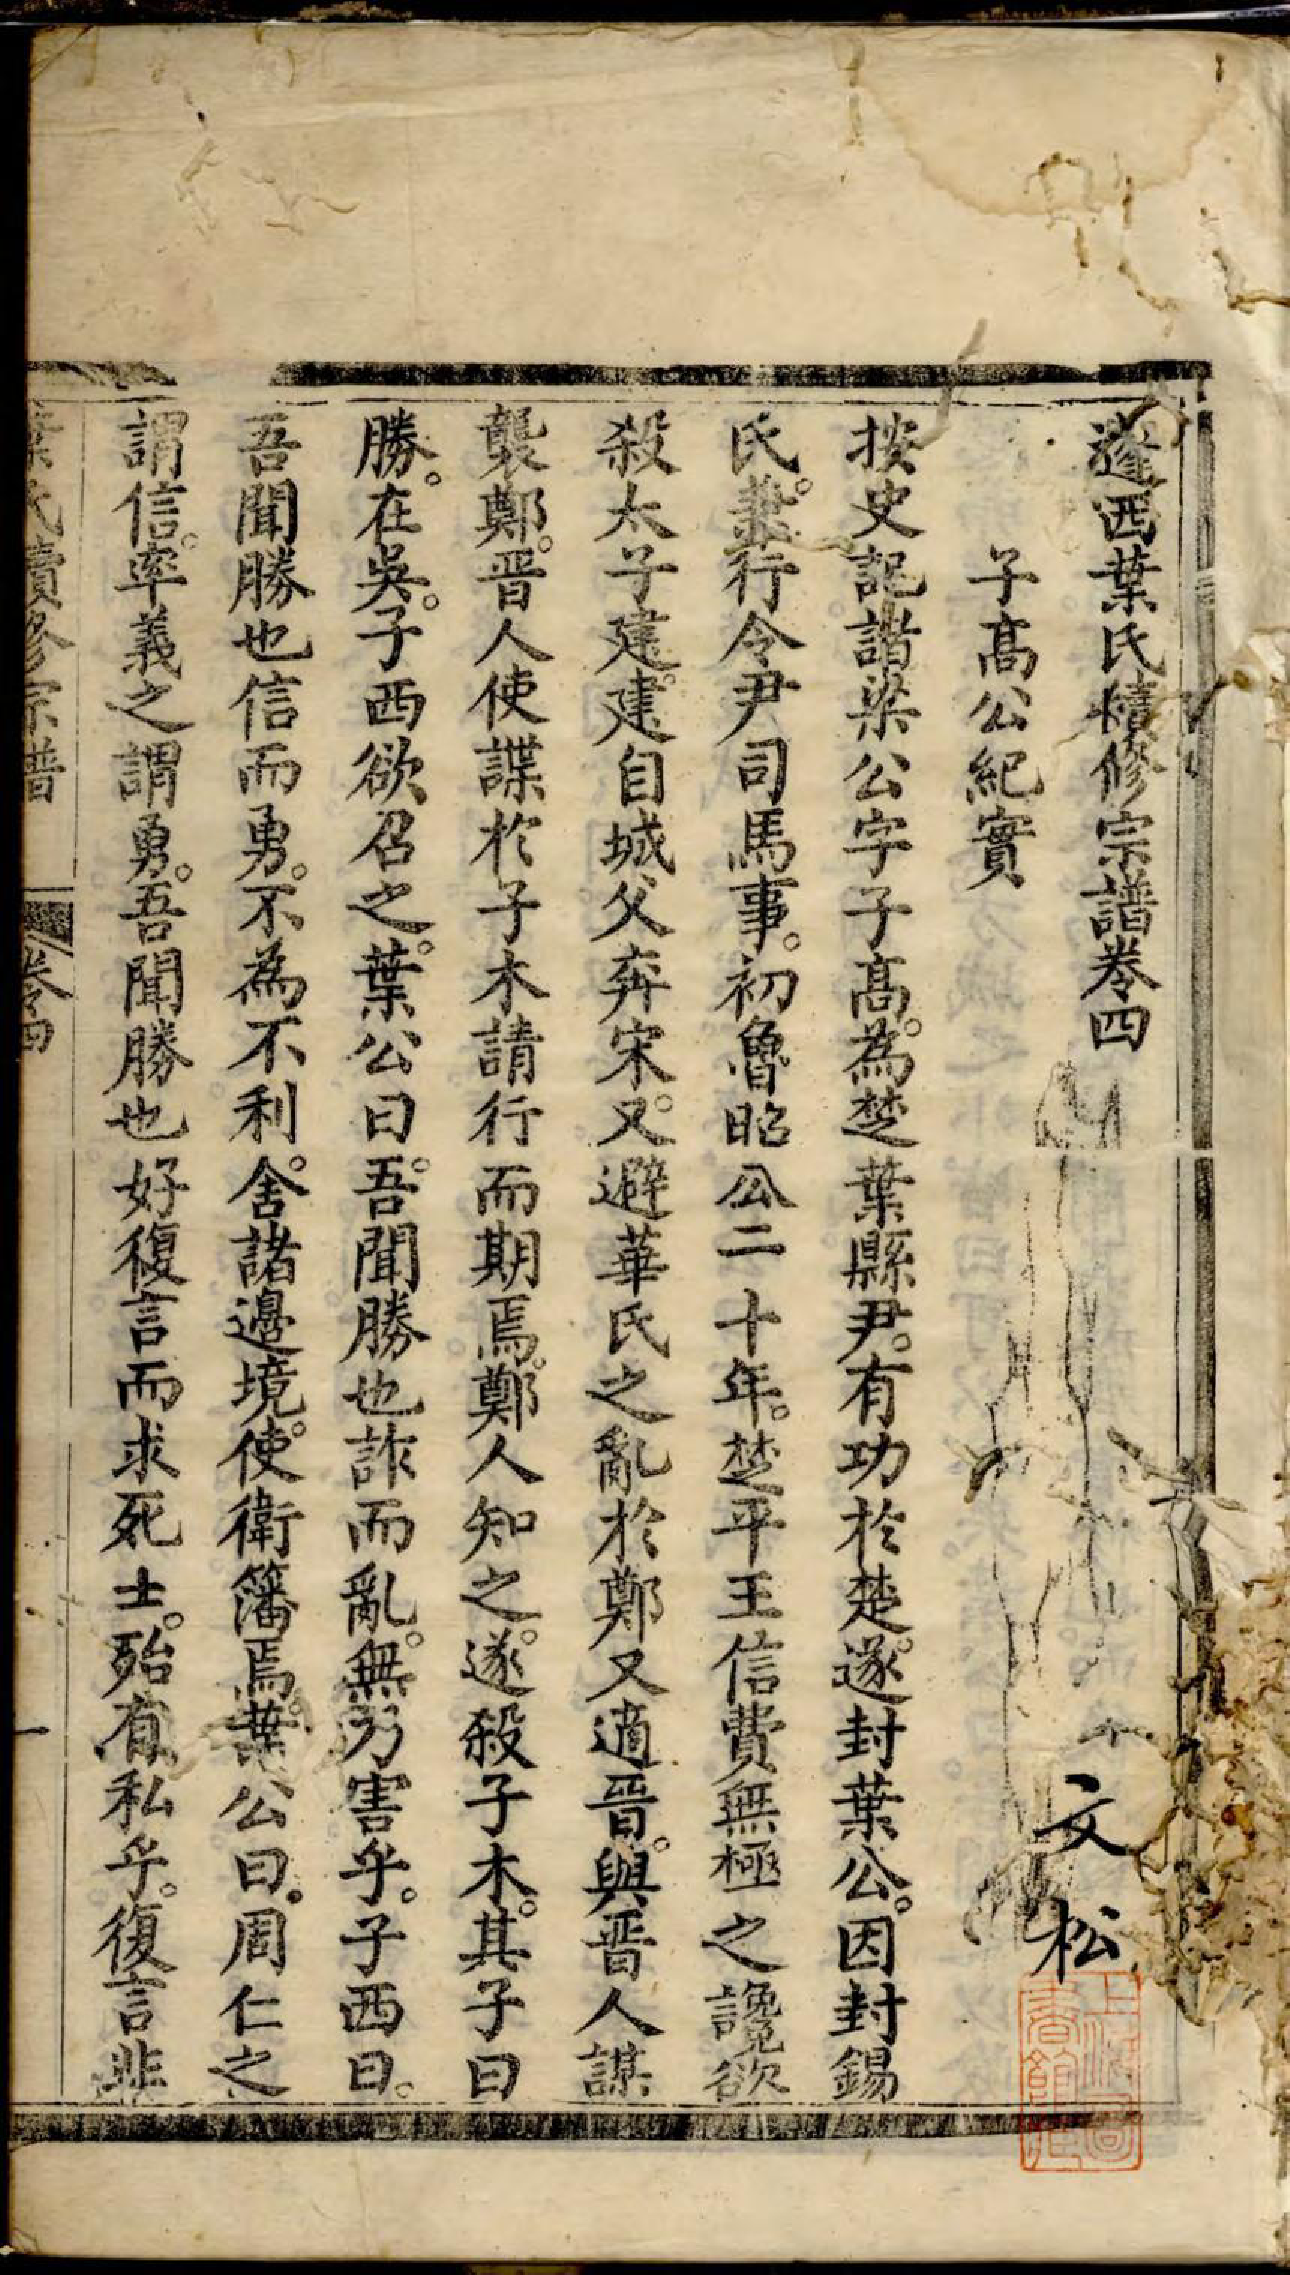 蓬西葉氏續修宗譜卷四
文松
上海圖書館藏
子高公紀實
按史記諧梁公字子高。為楚葉縣尹。有功於楚。遂封葉公。因封錫
氏。兼行令尹司馬事。初魯昭公二十年。楚平王信費無極之讒欲
殺太子建。建自城父奔宋。又避華氏之亂於鄭又適晋。與晋人謀
襲鄭。晋人使諜於子木請行而期焉。鄭人知之。遂殺子木。其子曰
勝。在吳。子西欲召之。葉公曰。吾聞勝也詐而亂。無乃害乎。子西曰。
吾聞勝也信而勇。不為不利。舍諸邊境。使衛籓焉。葉公曰。周仁之
謂信。率義之謂勇。吾聞勝也好復言而求死士。殆有私乎。復言非
葉氏續修宗譜 卷四 一